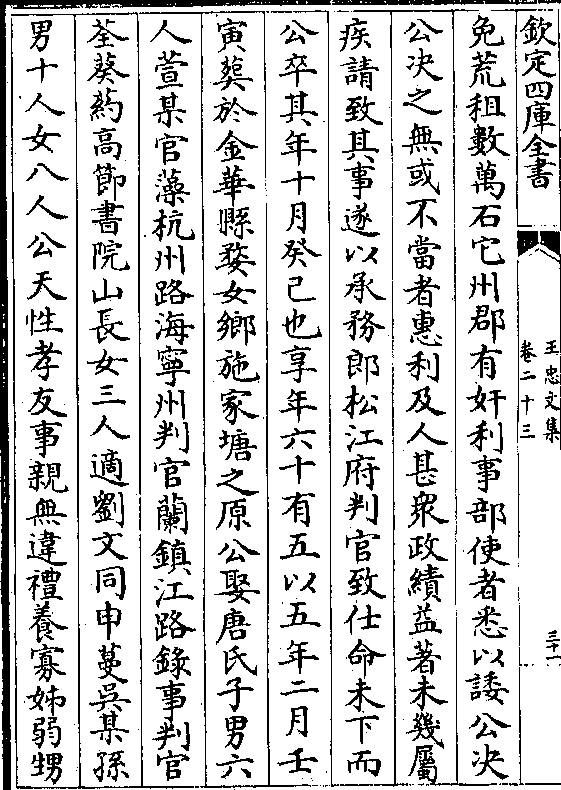 欽定四庫全書
王忠文集
卷二十三
三十一
免荒租數萬石它州郡有奸利事部使者悉以諉公决
公决之無或不當者惠利及人甚衆政績益著未幾屬
疾請致其事遂以承務郎松江府判官致仕命未下而
公卒其年十月癸己也享年六十有五以五年二月壬
寅葬於金華縣婺女鄉施家塘之原公娶唐氏子男六
人萱某官藻杭州路海寧州判官蘭鎮江路錄事判官
荃葵葯高節書院山長女三人適劉文同申蔓吳某孫
男十人女八人公天性孝友事親無違禮養寡姊弱甥